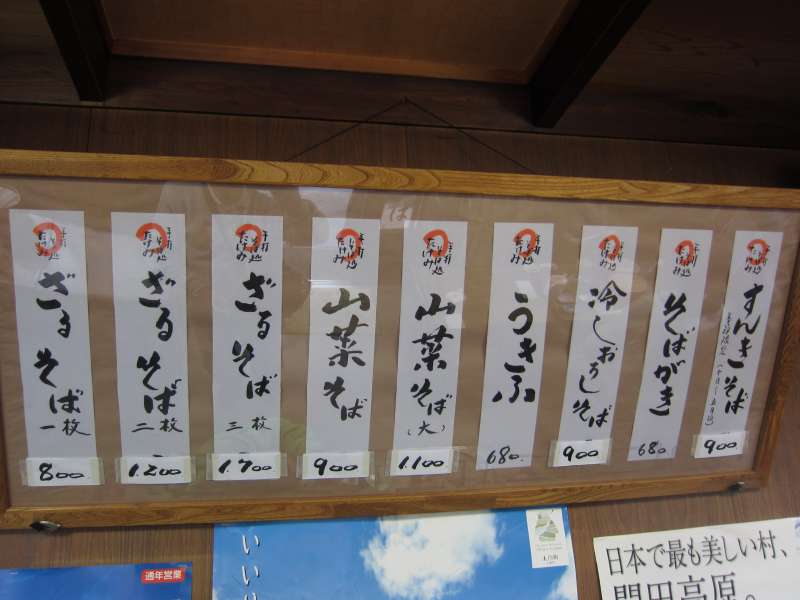 手打
そば処
たけみ
すんきそば
900
手打
そば処
たけみ
そばがき
680.
手打
そば処
たけみ
冷しおろしそば
900
手打
そば処
たけみ
うきふ
680.
手打
そば処
たけみ
山菜そば
(大)
1100
手打
そば処
たけみ
山菜そば
900
手打
そば処
たけみ
ざるそば
三枚
1.700
手打
そば処
たけみ
ざるそば
二枚
1.200
手打
そば処
たけみ
ざるそば
一枚
800
通年営業
いい
日本で最も美しい村、
開田高原。